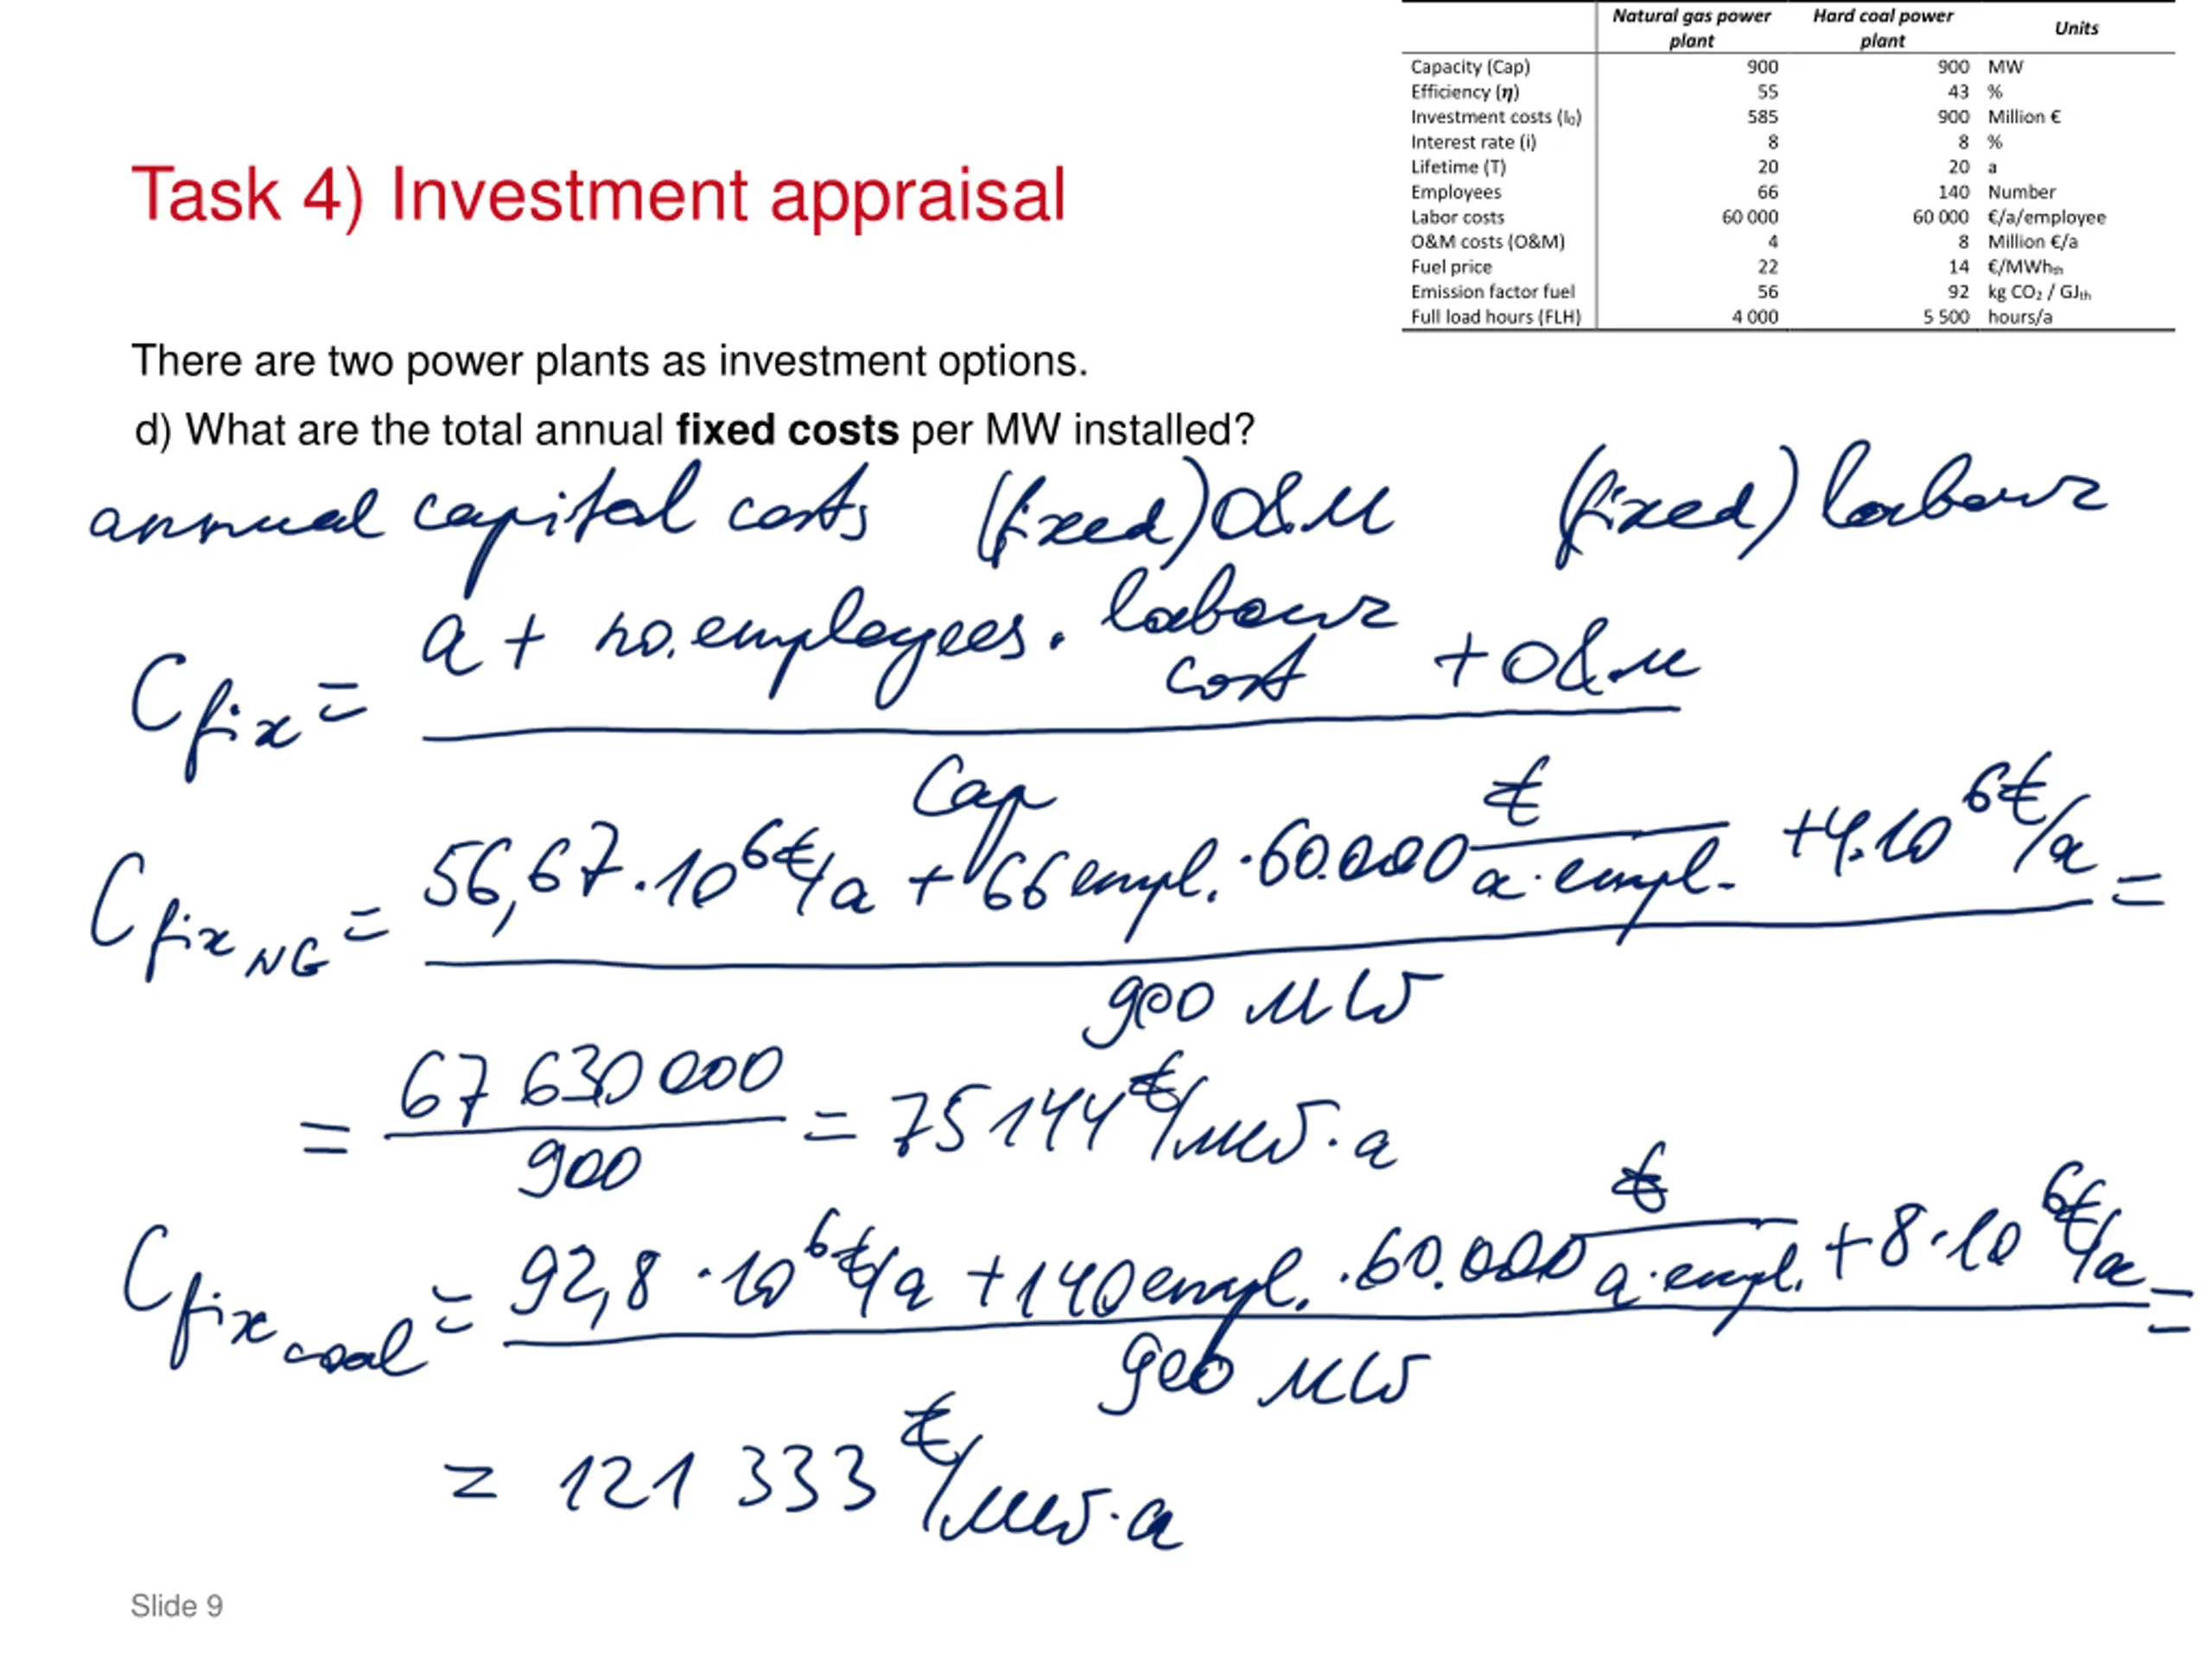 Natural gas power plant Hard coal power plant Units
Capacity (Cap) 900 900 MW
Efficiency (η) 55 43 %
Investment costs (I₀) 585 900 Million €
Interest rate (i) 8 8 %
Lifetime (T) 20 20 a
Employees 66 140 Number
Labor costs 60 000 60 000 €/a/employee
O&M costs (O&M) 4 8 Million €/a
Fuel price 22 14 €/MWhₜₕ
Emission factor fuel 56 92 kg CO₂ / GJₜₕ
Full load hours (FLH) 4 000 5 500 hours/a
Task 4) Investment appraisal
There are two power plants as investment options.
d) What are the total annual fixed costs per MW installed?
annual capital costs (fixed) O&M (fixed) labour
C fix = a + no. employees · labour cost + O&M
Cap
C fix NG = 56,67 · 10⁶ €/a + 66 empl. · 60.000 € / a · empl. + 4 · 10⁶ €/a =
900 MW
= 67 630 000 / 900 = 75 144 €/MW · a
C fix coal = 92,8 · 10⁶ €/a + 140 empl. · 60.000 € / a · empl. + 8 · 10⁶ €/a =
900 MW
= 121 333 €/MW · a
Slide 9